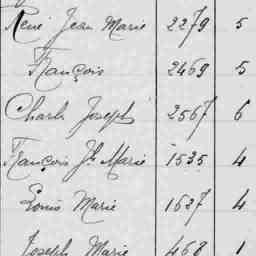 René Jean Marie 2279 5
François 2469 5
Charles Joseph 2567 6
François Jh Marie 1535 4
Louis Marie 1627 4
Joseph Marie 468 1